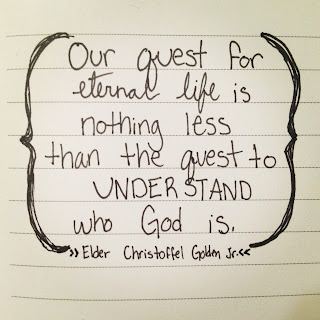 Our quest for
eternal life is
nothing less
than the quest to
UNDERSTAND
who God is.
»Elder Christoffel Golden Jr.«